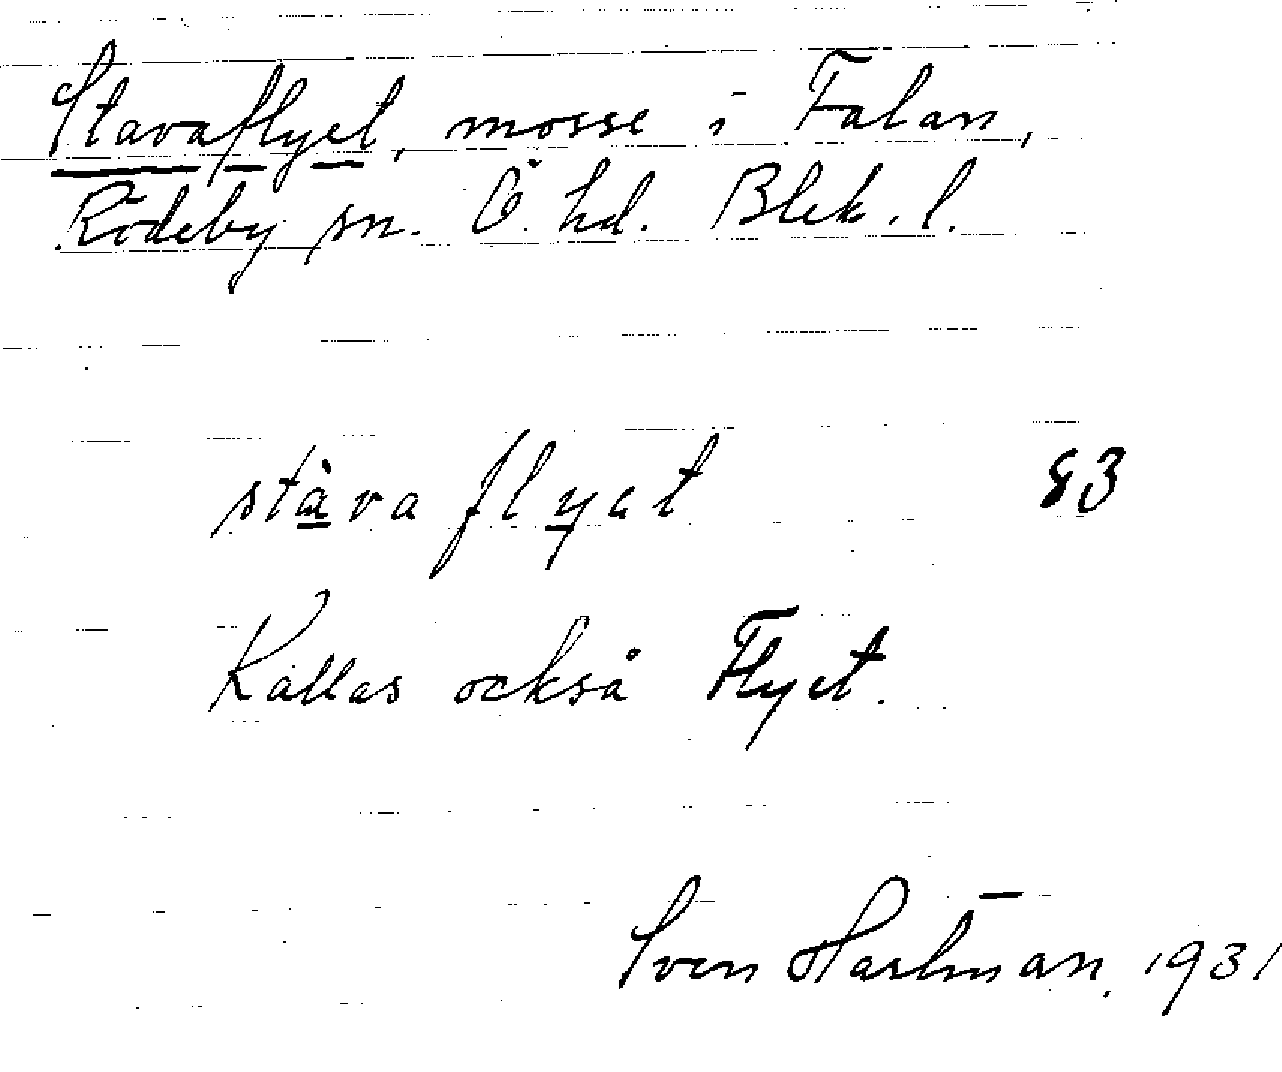 Stavaflyet, mosse i Falan,
Rödeby sn. Ö. hd. Blek. l.
stàva flyet 83
Kallas också Flyet.
Sven Hartman. 1931